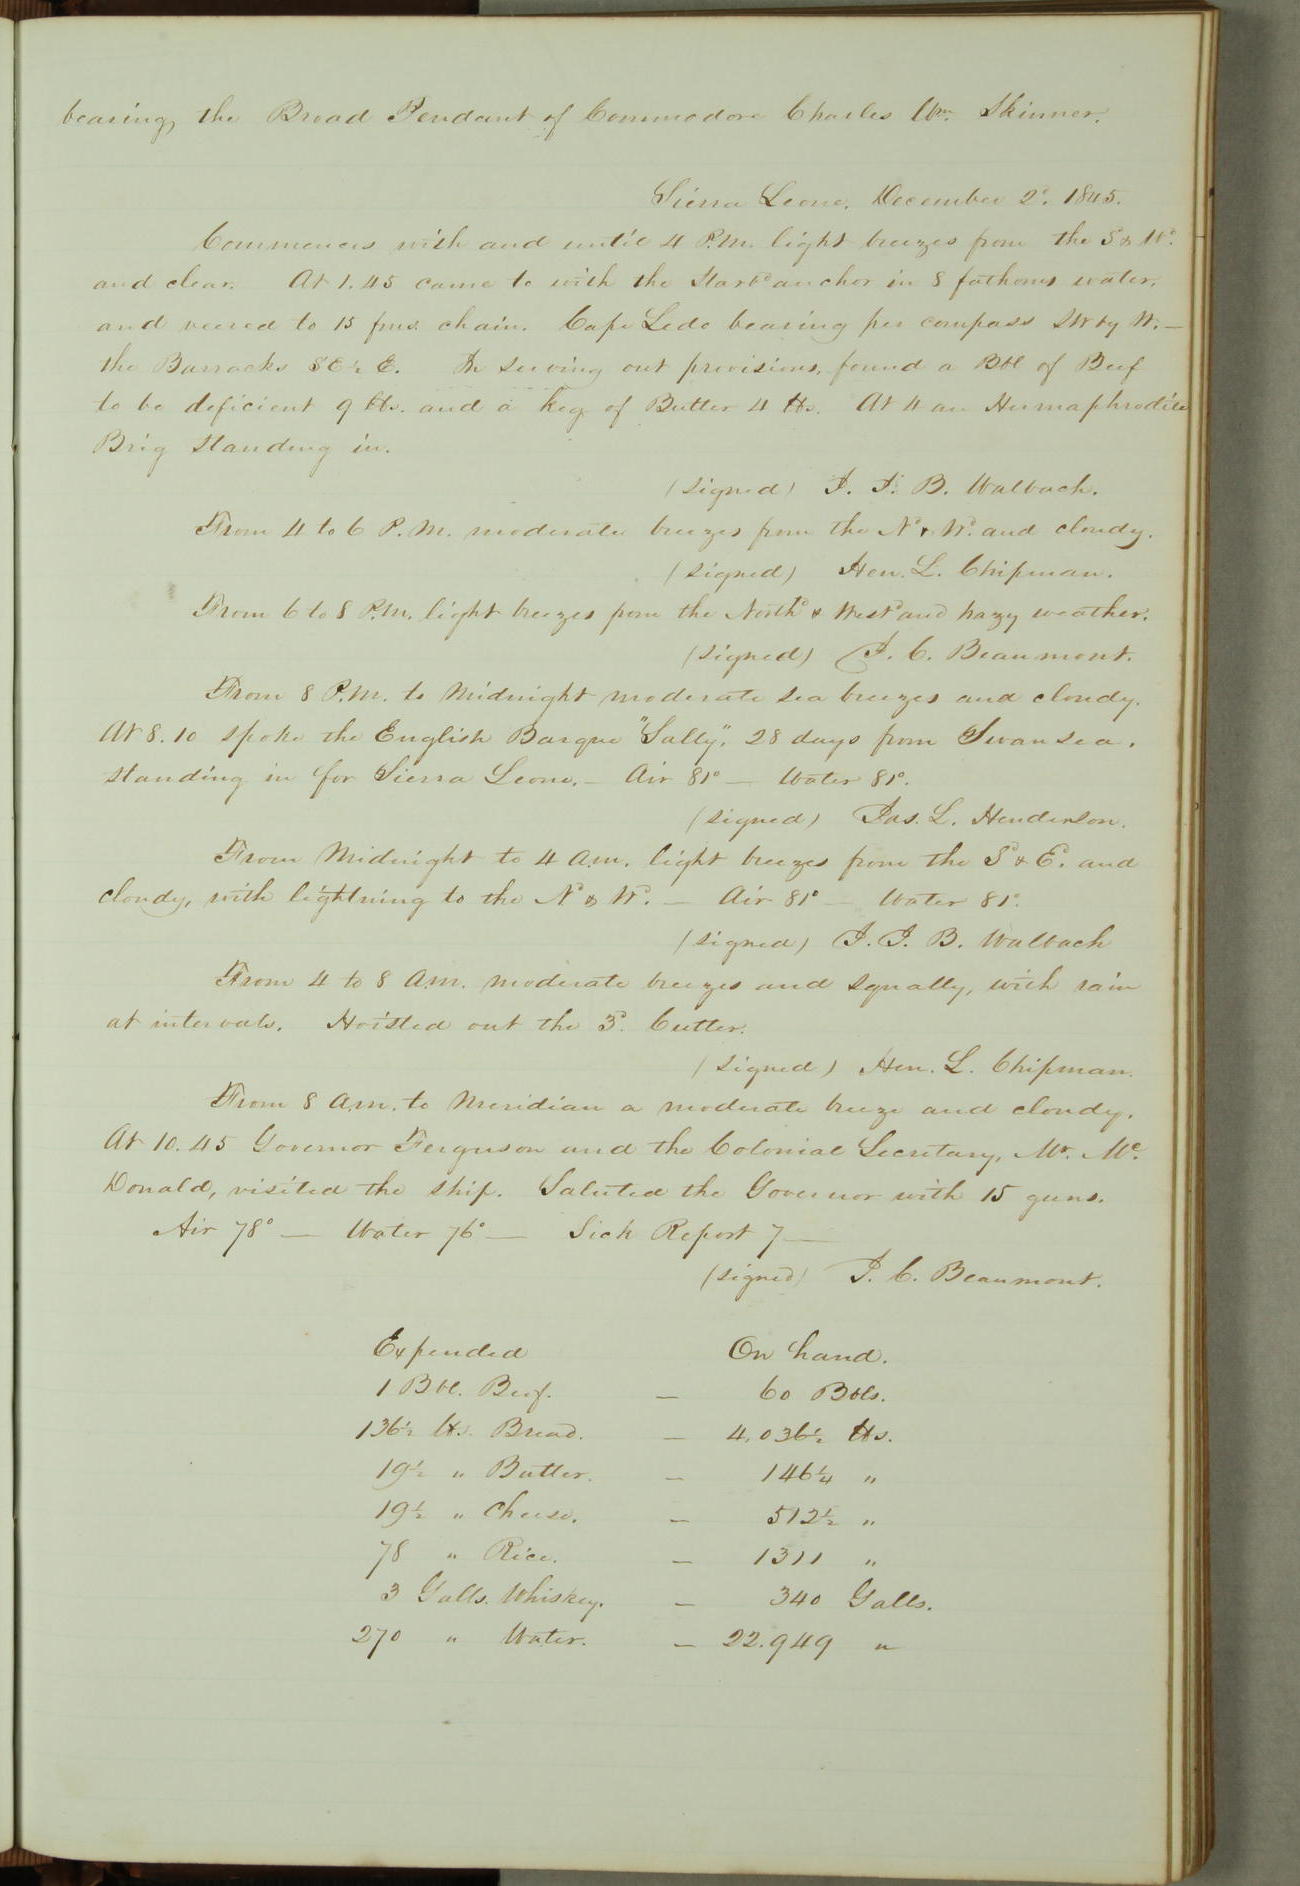 bearing, the Broad Pendant of Commodore Charles Wm. Skinner.
Sierra Leone. December 2d. 1845.
Commences with and until 4 P.M. light breezes from the Sd & Wd.
and clear. At 1.45 came to with the Starbd anchor in 8 fathoms water,
and veered to 15 fms. chain. Cape Lede bearing per compass SW by W. —
the Barracks SE ½ E. In serving out provisions, found a Bbl of Beef
to be deficient 9 lbs. and a keg of Butter 4 lbs. At 4 an Hermaphrodite
Brig standing in.
(signed) J. J. B. Walbach.
From 4 to 6 P.M. moderate breezes from the Nd & Wd. and cloudy.
(signed) Hen. L. Chipman.
From 6 to 8 P.M. light breezes from the Northd & Westd and hazy weather.
(signed) J. C. Beaumont.
From 8 P.M. to Midnight moderate sea breezes and cloudy.
At 8.10 spoke the English Barque "Sally", 28 days from Swansea,
standing in for Sierra Leone. — Air 81° — Water 81°.
(signed) Jas. L. Henderson.
From Midnight to 4 A.M. light breezes from the Sd & Ed. and
cloudy, with lightning to the Nd & Wd. — Air 81° — Water 81°.
(signed) J. J. B. Walbach
From 4 to 8 A.M. moderate breezes and squally, with rain
at intervals. Hoisted out the 3d. Cutter.
(signed) Hen. L. Chipman.
From 8 A.M. to Meridian a moderate breeze and cloudy.
At 10.45 Governor Ferguson and the Colonial Secretary, Mr. Mc.
Donald, visited the ship. Saluted the Governor with 15 guns.
Air 78° — Water 76° — Sick Report 7 —
(signed) J. C. Beaumont.
Expended On hand.
1 Bbl. Beef. — 60 Bbls.
136½ lbs. Bread. — 4,036½ lbs.
19½ " Butter. — 146¼ "
19½ " Cheese. — 512½ "
78 " Rice. — 1311 "
3 Galls. Whiskey. — 340 Galls.
270 " Water. — 22.949 "